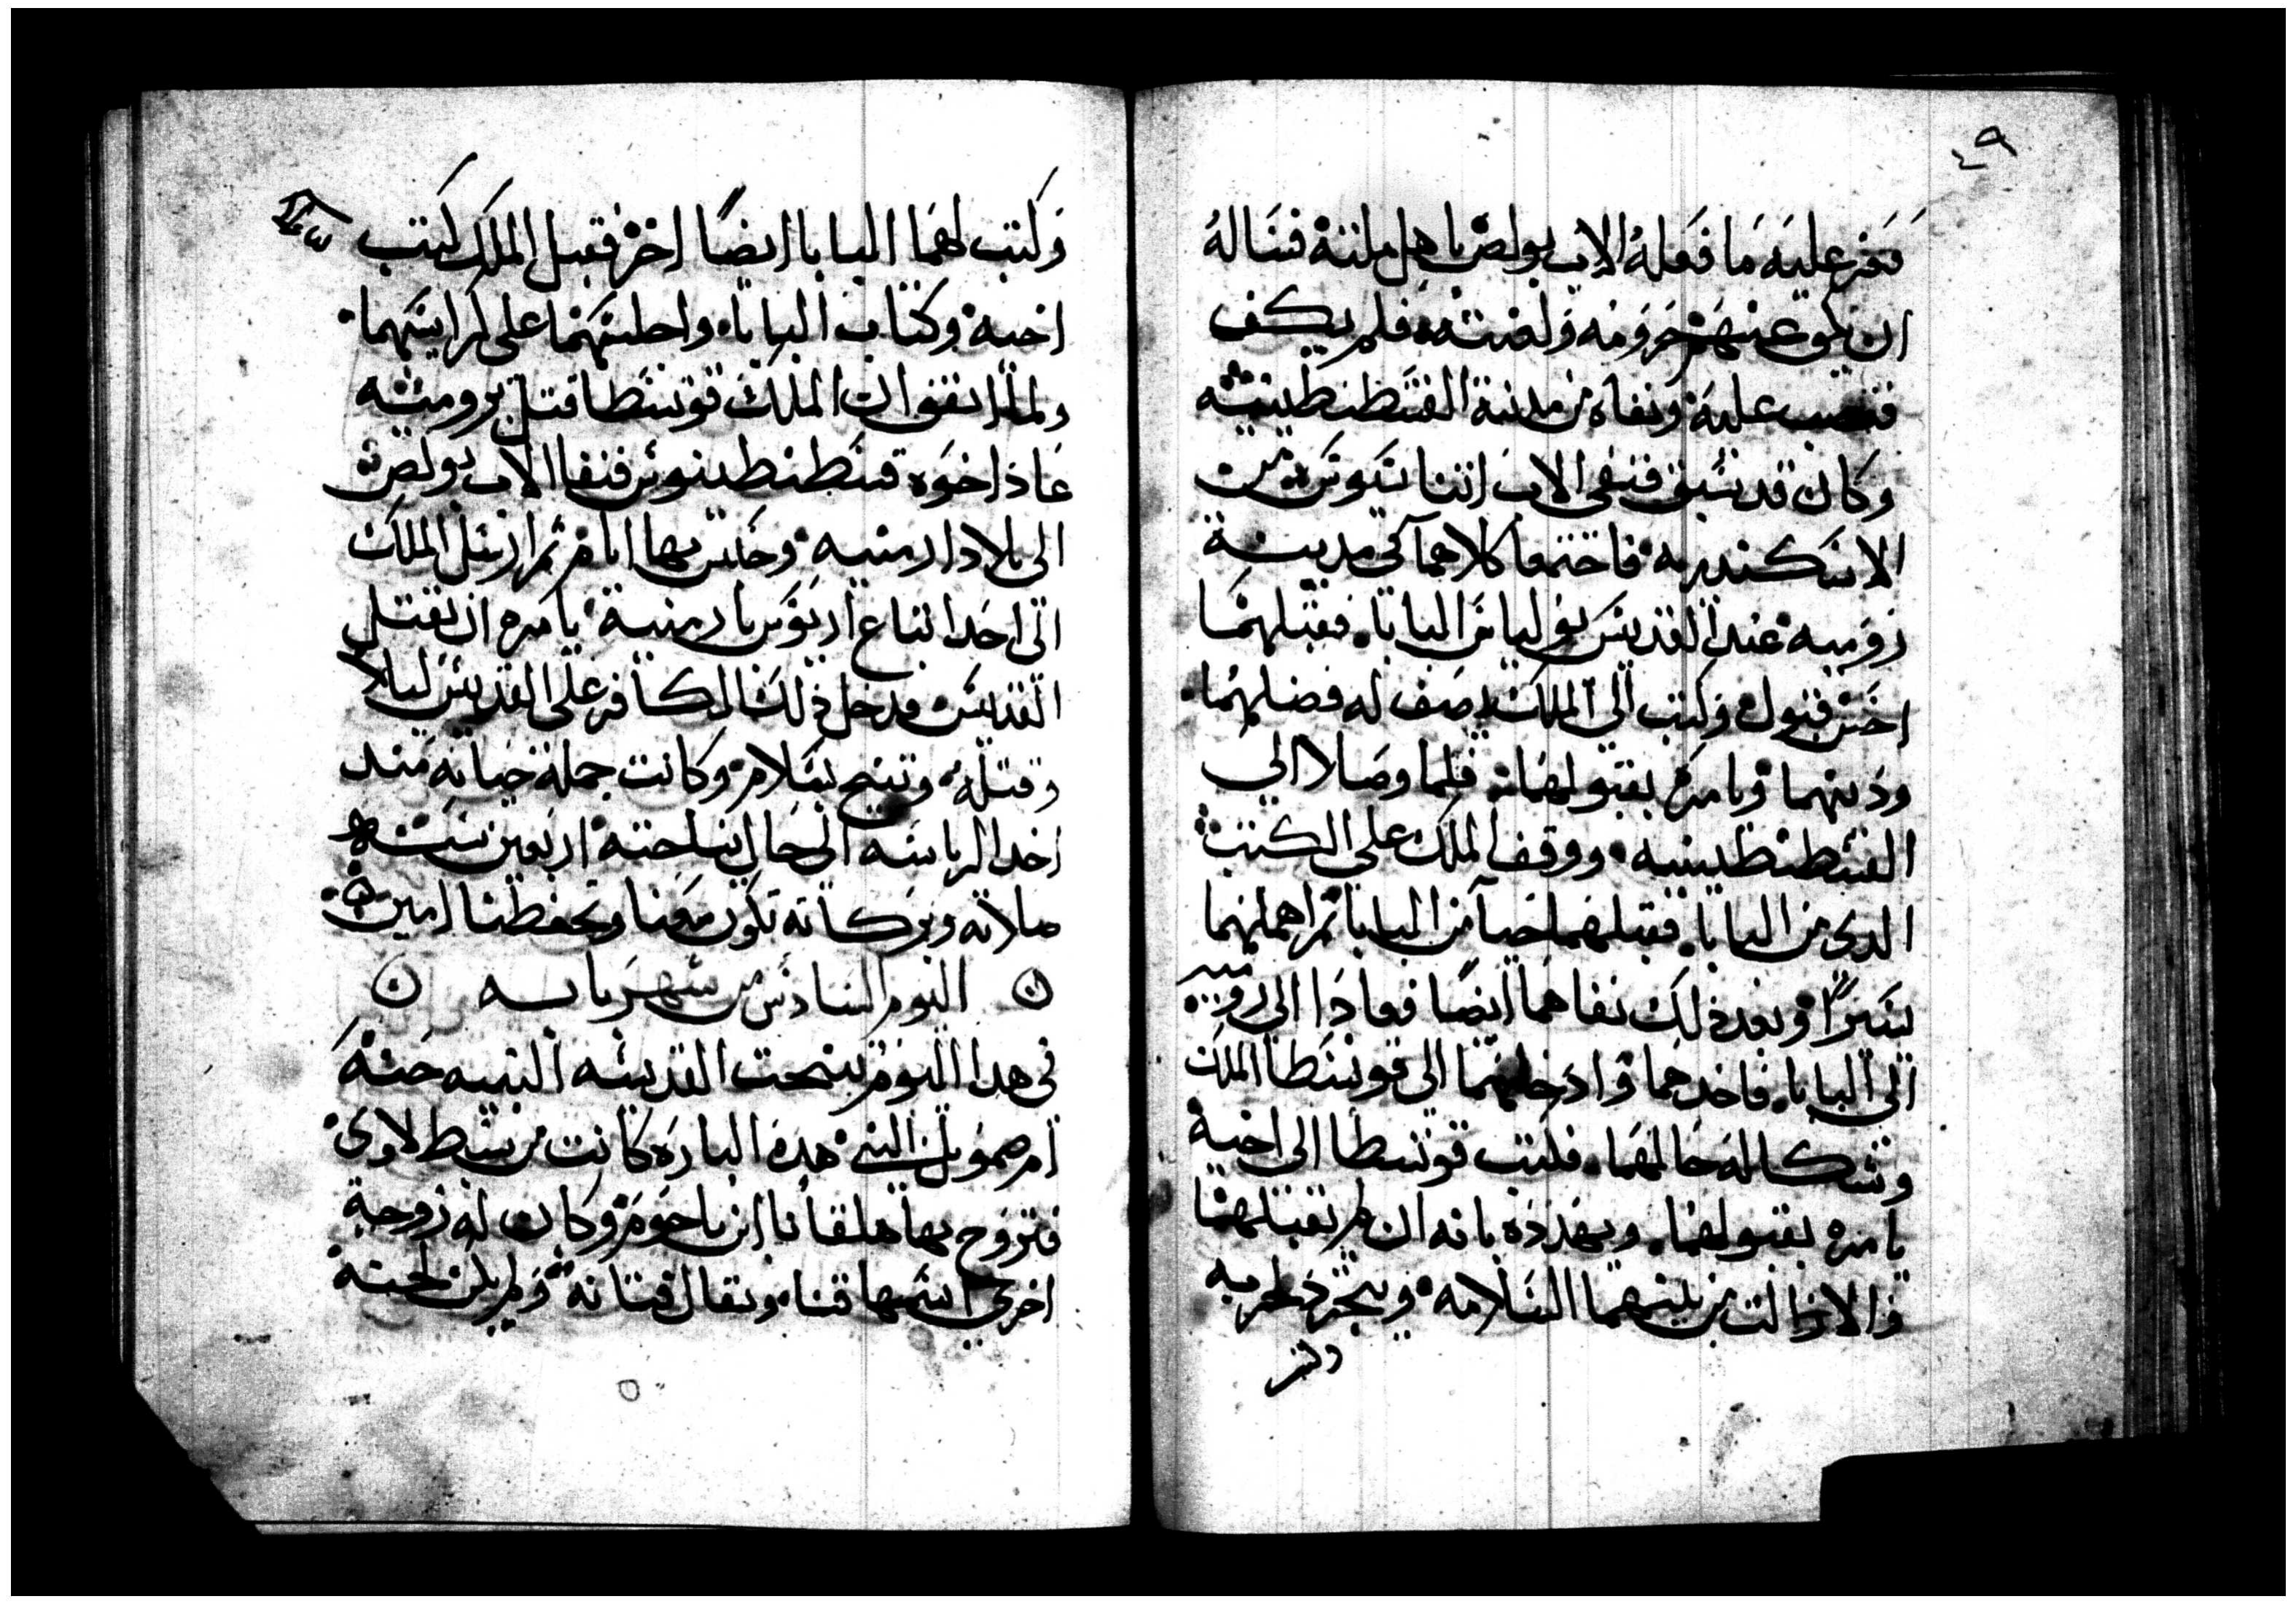 ٤٩
فعز عليه ما فعله الاب بولص باهل ملته فساله
ان يحل عنهم حرومه ولعنته فلم يكف
فغضب عليه ونفاه من مدينة القسطنطينيه
وكان قد سبق فنفى الاب اتناسيوس من
الاسكندريه فاجتمعا كلاهما في مدينة
روميه عند القديس يوليانس البابا فقبلهما
احسن قبول وكتب الى الملك يصف له فضلهما
ودينهما ويامره بقبولهما فلما وصلا الى
القسطنطينيه ووقف الملك على الكتب
الدي من البابا فقبلهما حيا من البابا ثم اهملهما
يسيرًا وبعد ذلك نفاهما ايضًا فعادا الى روميه
الى البابا فاخدهما وادخلهما الى قونسطا الملك
وشكا له حالهما فكتب قونسطا الى اخيه
يامره بقبولهما ويهدده بانه ان لم تقبلهما
والا زالت من بينهما السلامه ويتجرد لحربه
وكتب
وكتب لهما البابا ايضًا اخر فقبل الملك كتب
اخيه وكتاب البابا واجلسهما على كراسيهما
ولما اتفق ان الملك قونسطا قتل بروميه
عاد اخوه قسطنطينوس فنفا الاب بولص
الى بلاد ارمنيه وحبس بها ايام ثم ارسل الملك
الى احد اتباع اريوس بارمنية يامره ان يقتل
القديس فدخل ذلك الكافر على القديس ليلا
وقتله وتنيح بسلام وكانت جملة حياته مند
اخد الرياسه الى حال نياحته اربعين سنه
صلاته وبركاته تكون معنا وتحفظنا امين
اليوم السادس من شهر بابه
في هدا اليوم تنيحت القديسه النبيه حنه
ام صمويل النبي هده البارة كانت من سبط لاوى
فتزوج بها هلقانا ابن ياحوم وكان له زوجة
اخرى اسمها فتنا ويقال فتانه ولم يكن لحنه